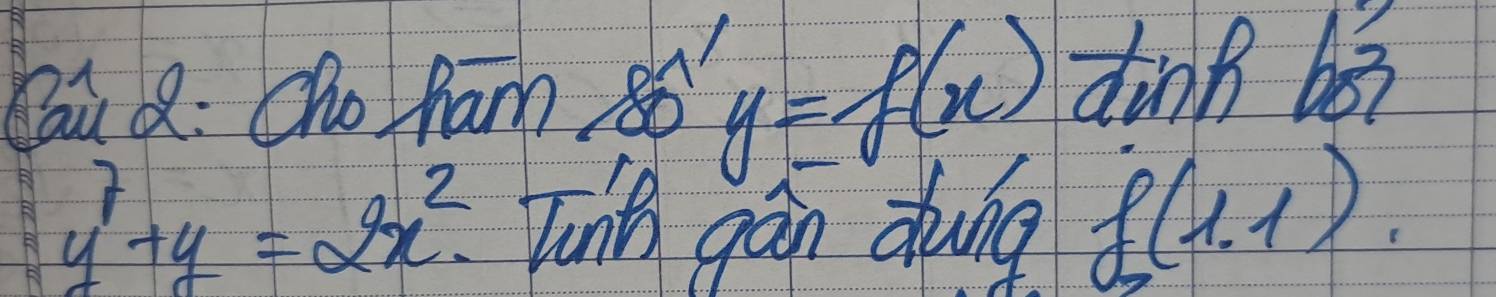 Câu 2: Cho hàm số y = f(x) định bởi
y⁷ + y = 2x². Tính gần đúng f(1.1).